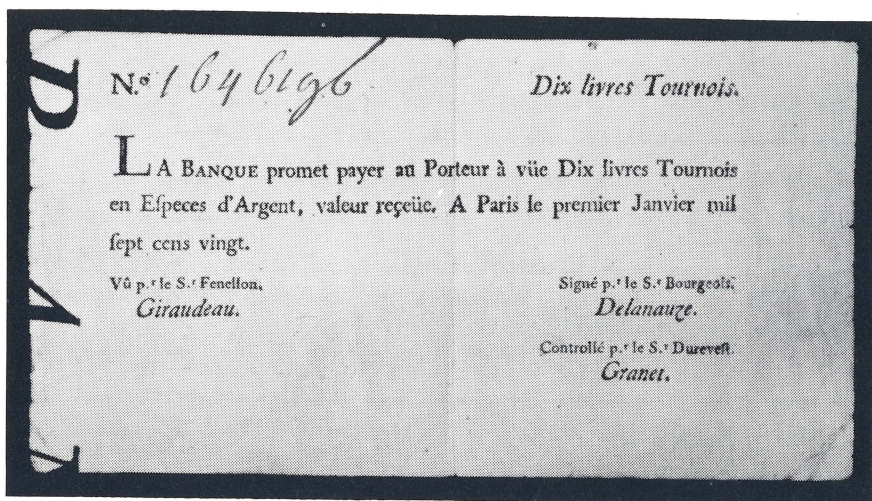 N.º 1646196 Dix livres Tournois.
LA BANQUE promet payer au Porteur à vûe Dix livres Tournois
en Eſpeces d'Argent, valeur reçeüe. A Paris le premier Janvier mil
ſept cens vingt.
Vû p.ʳ le S.ʳ Fenellon. Signé p.ʳ le S.ʳ Bourgeois.
Giraudeau. Delanauze.
Controllé p.ʳ le S.ʳ Dureveſt.
Granet.